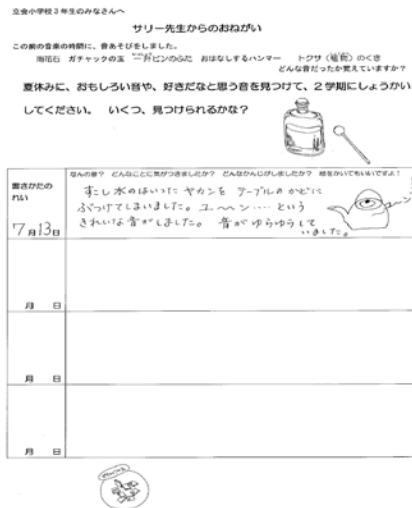 立会小学校3年生のみなさんへ
サリー先生からのおねがい
この前の音楽の時間に、音あそびをしました。
ガチャックの玉 一升ビンのふた おはなしするハンマー トクサ(植物)のくき
どんな音だったか覚えていますか?
夏休みに、おもしろい音や、好きだなと思う音を見つけて、2学期にしょうかい
してください。 いくつ、見つけられるかな?
書きかたの
れい
7月13日
なんの音? どんなことに気がつきましたか? どんなかんじがしましたか? 絵をかいてもいいですよ!
すこし水のはいった ヤカンを テーブルのかどに
ぶつけてしまいました。ユ〜〜ン‥‥という
きれいな音がしました。 音がゆらゆらして
いました。
月 日
月 日
月 日